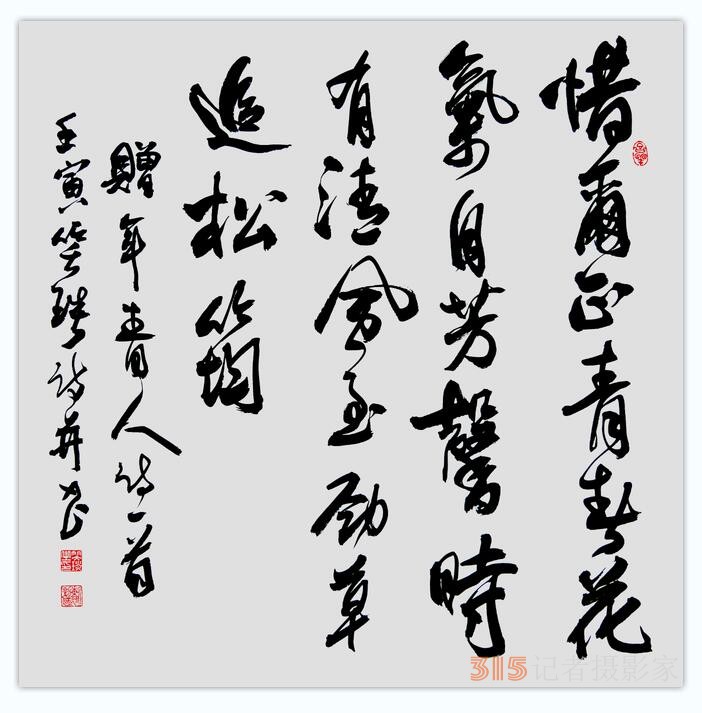 惜爾正青春花
氣自芳馨時
有清風至勁草
追松筠
贈年青人詩一首
壬寅笑琴詩并書
315记者摄影家